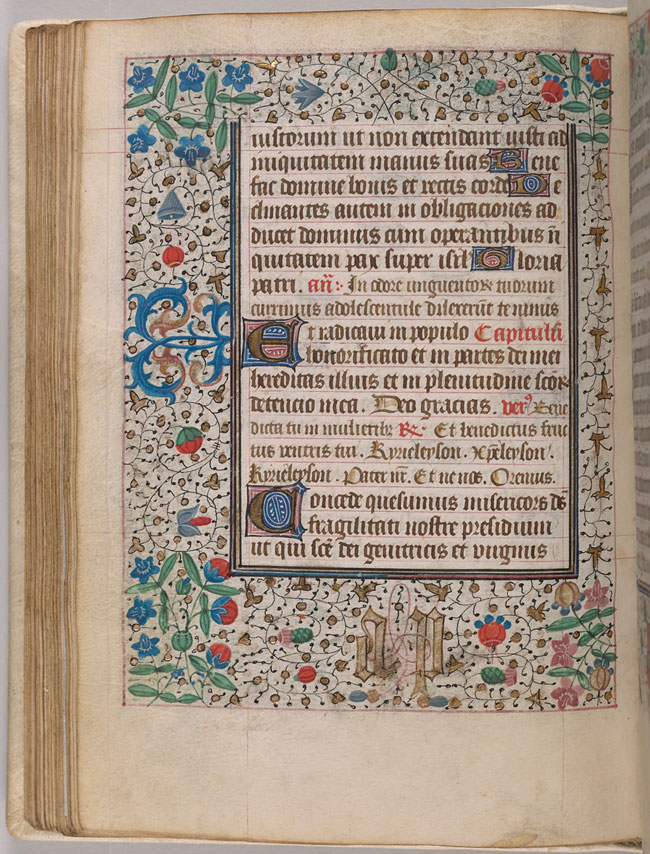 iustorum ut non extendant iusti ad
iniquitatem manus suas Bene
fac domine bonis et rectis corde De
clinantes autem in obligaciones ad
ducet dominus cum operantibus iñ
quitatem pax super isrl Gloria
patri. añ: In odore unguentoꝝ tuorum
currimus adolescentule dilexerũt te nimis
Et radicavi in populo Capitulũ
honorificato et in partes dei mei
hereditas illius et in plenitudine scõꝝ
detencio mea. Deo gracias. verꝰ Bene
dicta tu in mulieribꝫ ℞ Et benedictus fruc
tus ventris tui. Kyrieleyson. xp̃eleyson.
Kyrieleyson. Pater nr̃. Et ne nos. Oremus.
Concede quesumus misericors dẽ
fragilitati nostre presidium
ut qui scẽ dei genitricis et virginis